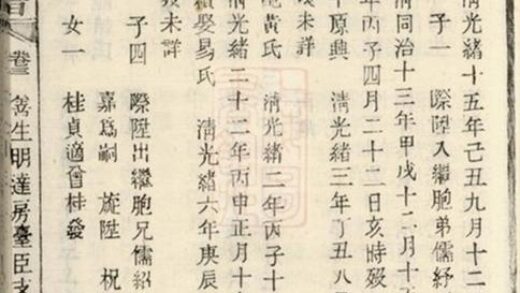 清光緒十五年己丑九月十二
子一 際陞入繼胞弟儒紓
清同治十三年甲戌十二月十
年丙子四月二十二日亥時歿
年原興 清光緒三年丁丑八
未詳
黃氏 清光緒二年丙子十
清光緒二十二年丙申正月十
續娶易氏 清光緒六年庚辰
未詳
子四 際陞出繼胞兄儒紹
嘉爲嗣 旋陞 祝
女一 桂貞適曾桂發
卷三 善生明達房臺臣支